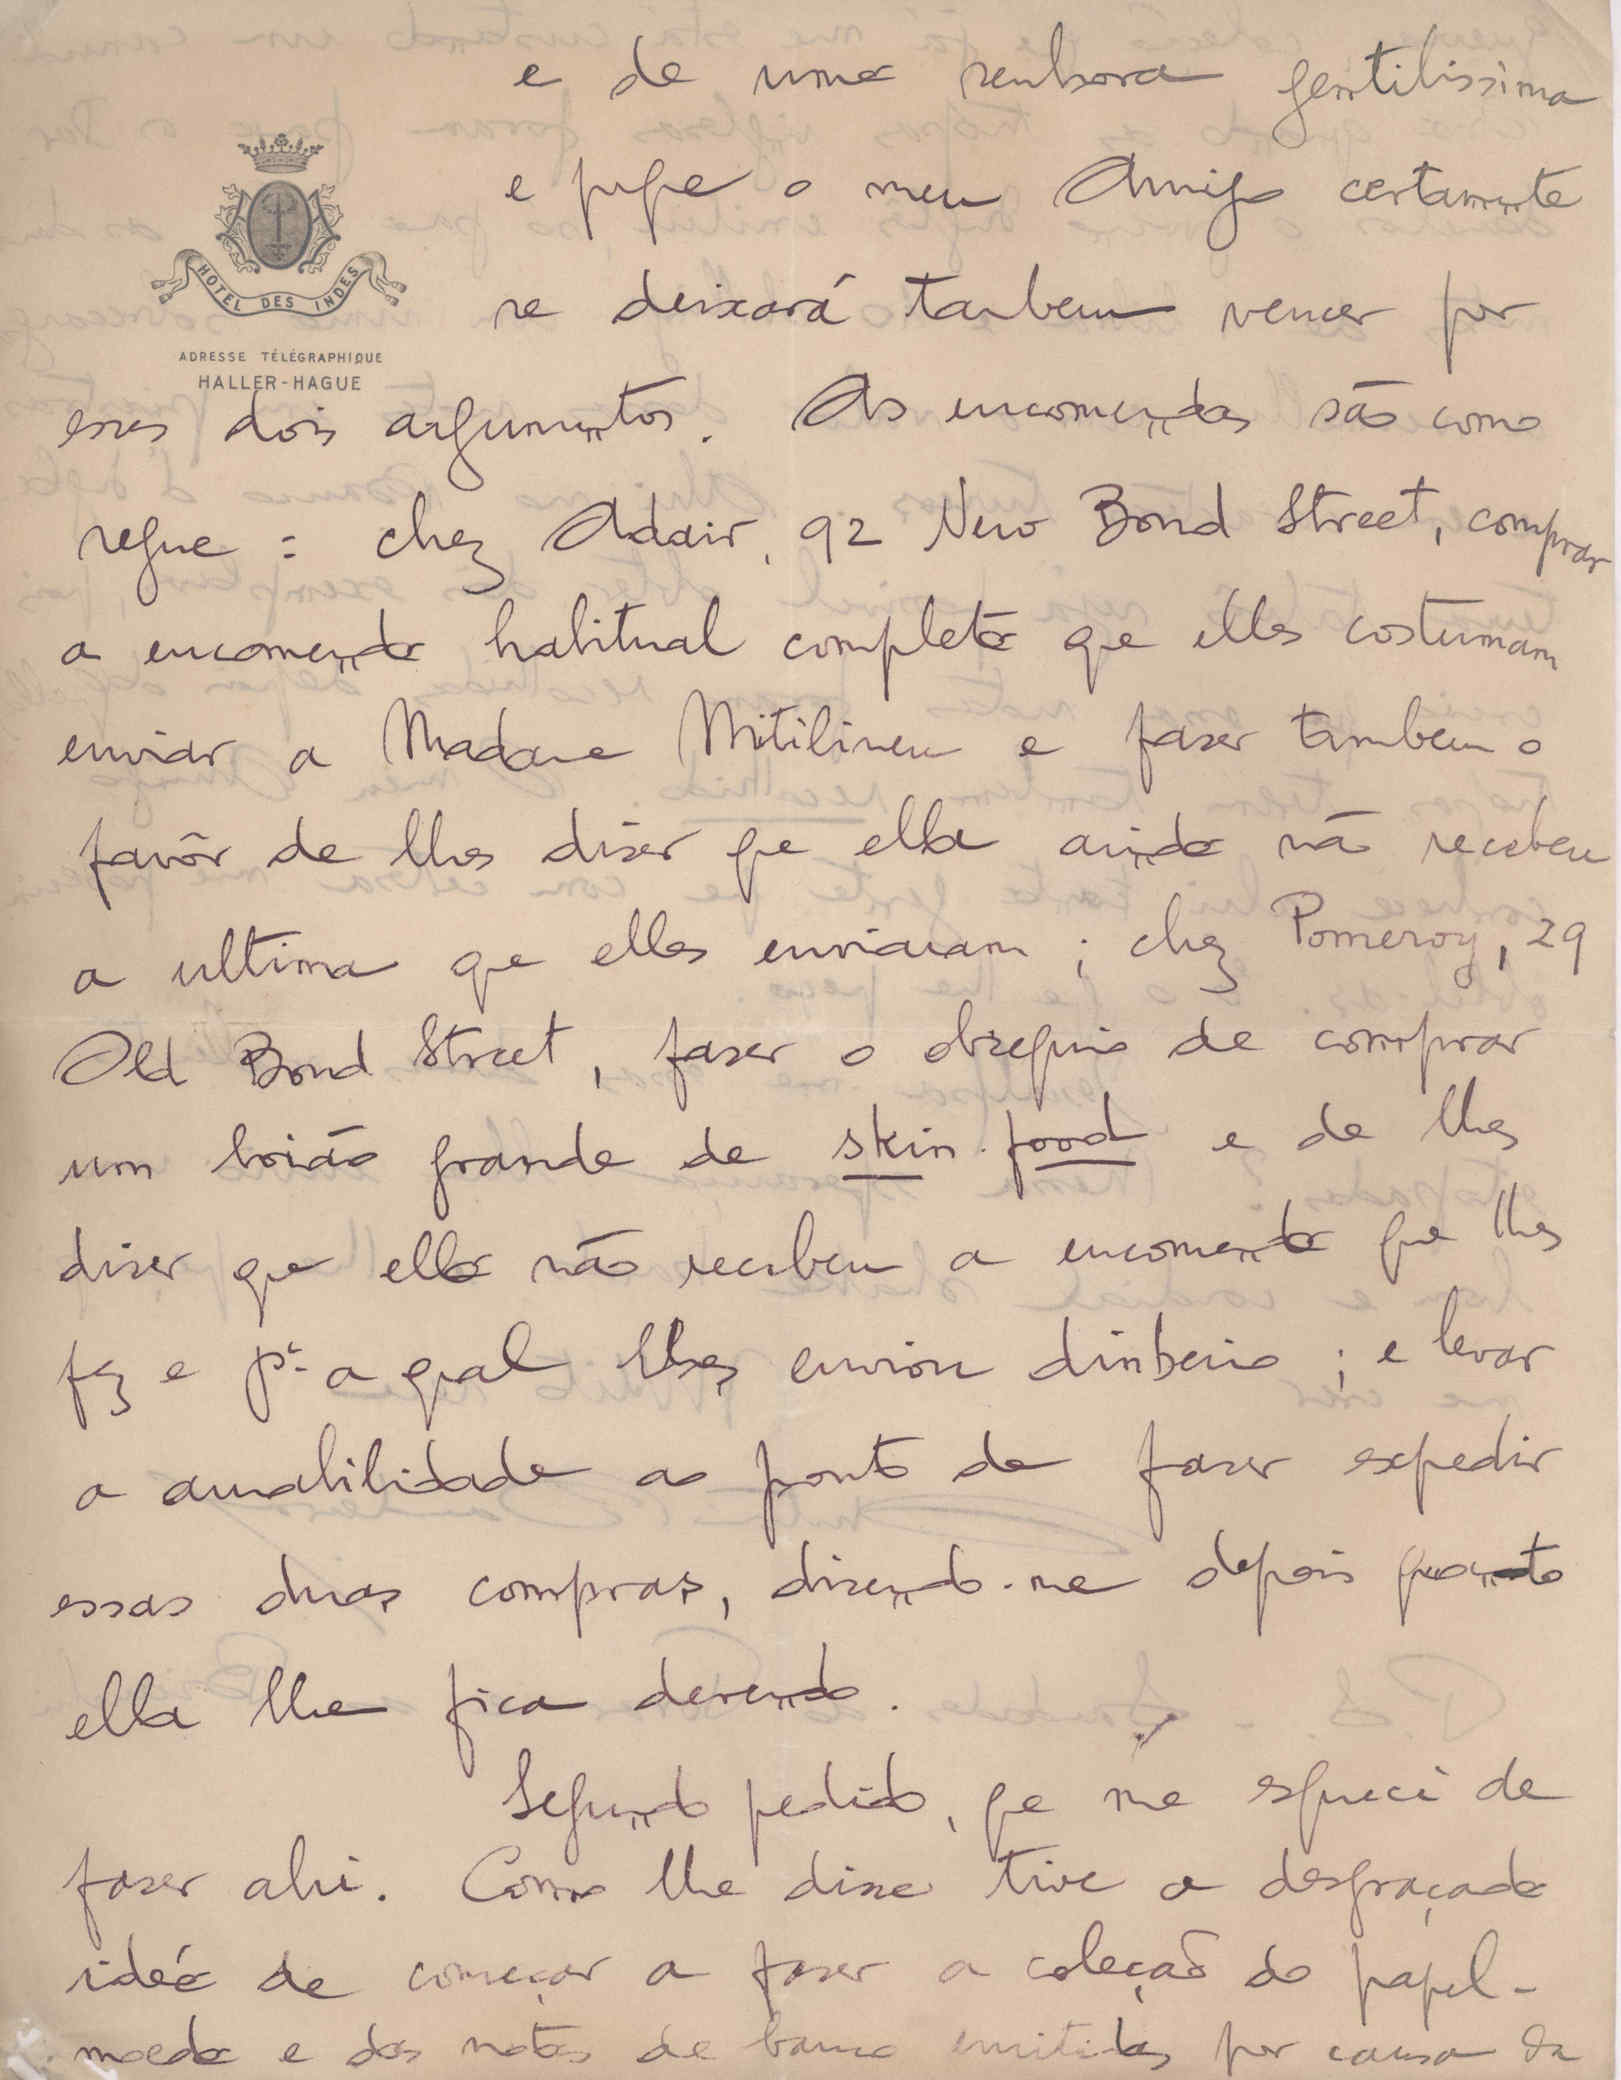 e de uma senhora gentilissima
HOTEL DES INDES
ADRESSE TÉLÉGRAPHIQUE
HALLER-HAGUE
e julgo o meu Amigo certamente
se deixará tambem vencer por
esses dois argumentos. As encomendas são como
segue: chez Adair, 92 New Bond Street, comprar
a encomenda habitual completa que elles costumam
enviar a Madame Mitilineu e fazer tambem o
favôr de lhes dizer que ella ainda não recebeu
a ultima que elles enviaram; chez Pomeroy, 29
Old Bond Street, fazer o obsequio de comprar
um boião grande de skin-food e de lhes
dizer que ella não recebeu a encomenda que lhes
fez e pª a qual lhes enviou dinheiro; e levar
a amabilidade ao ponto de fazer expedir
essas duas compras, dizendo-me depois quanto
ella lhe fica devendo.
Segundo pedido, que me esqueci de
fazer ahi. Como lhe disse tive a desgraçada
idéa de começar a fazer a coleção do papel-
moeda e das notas de banco emitidas por causa da